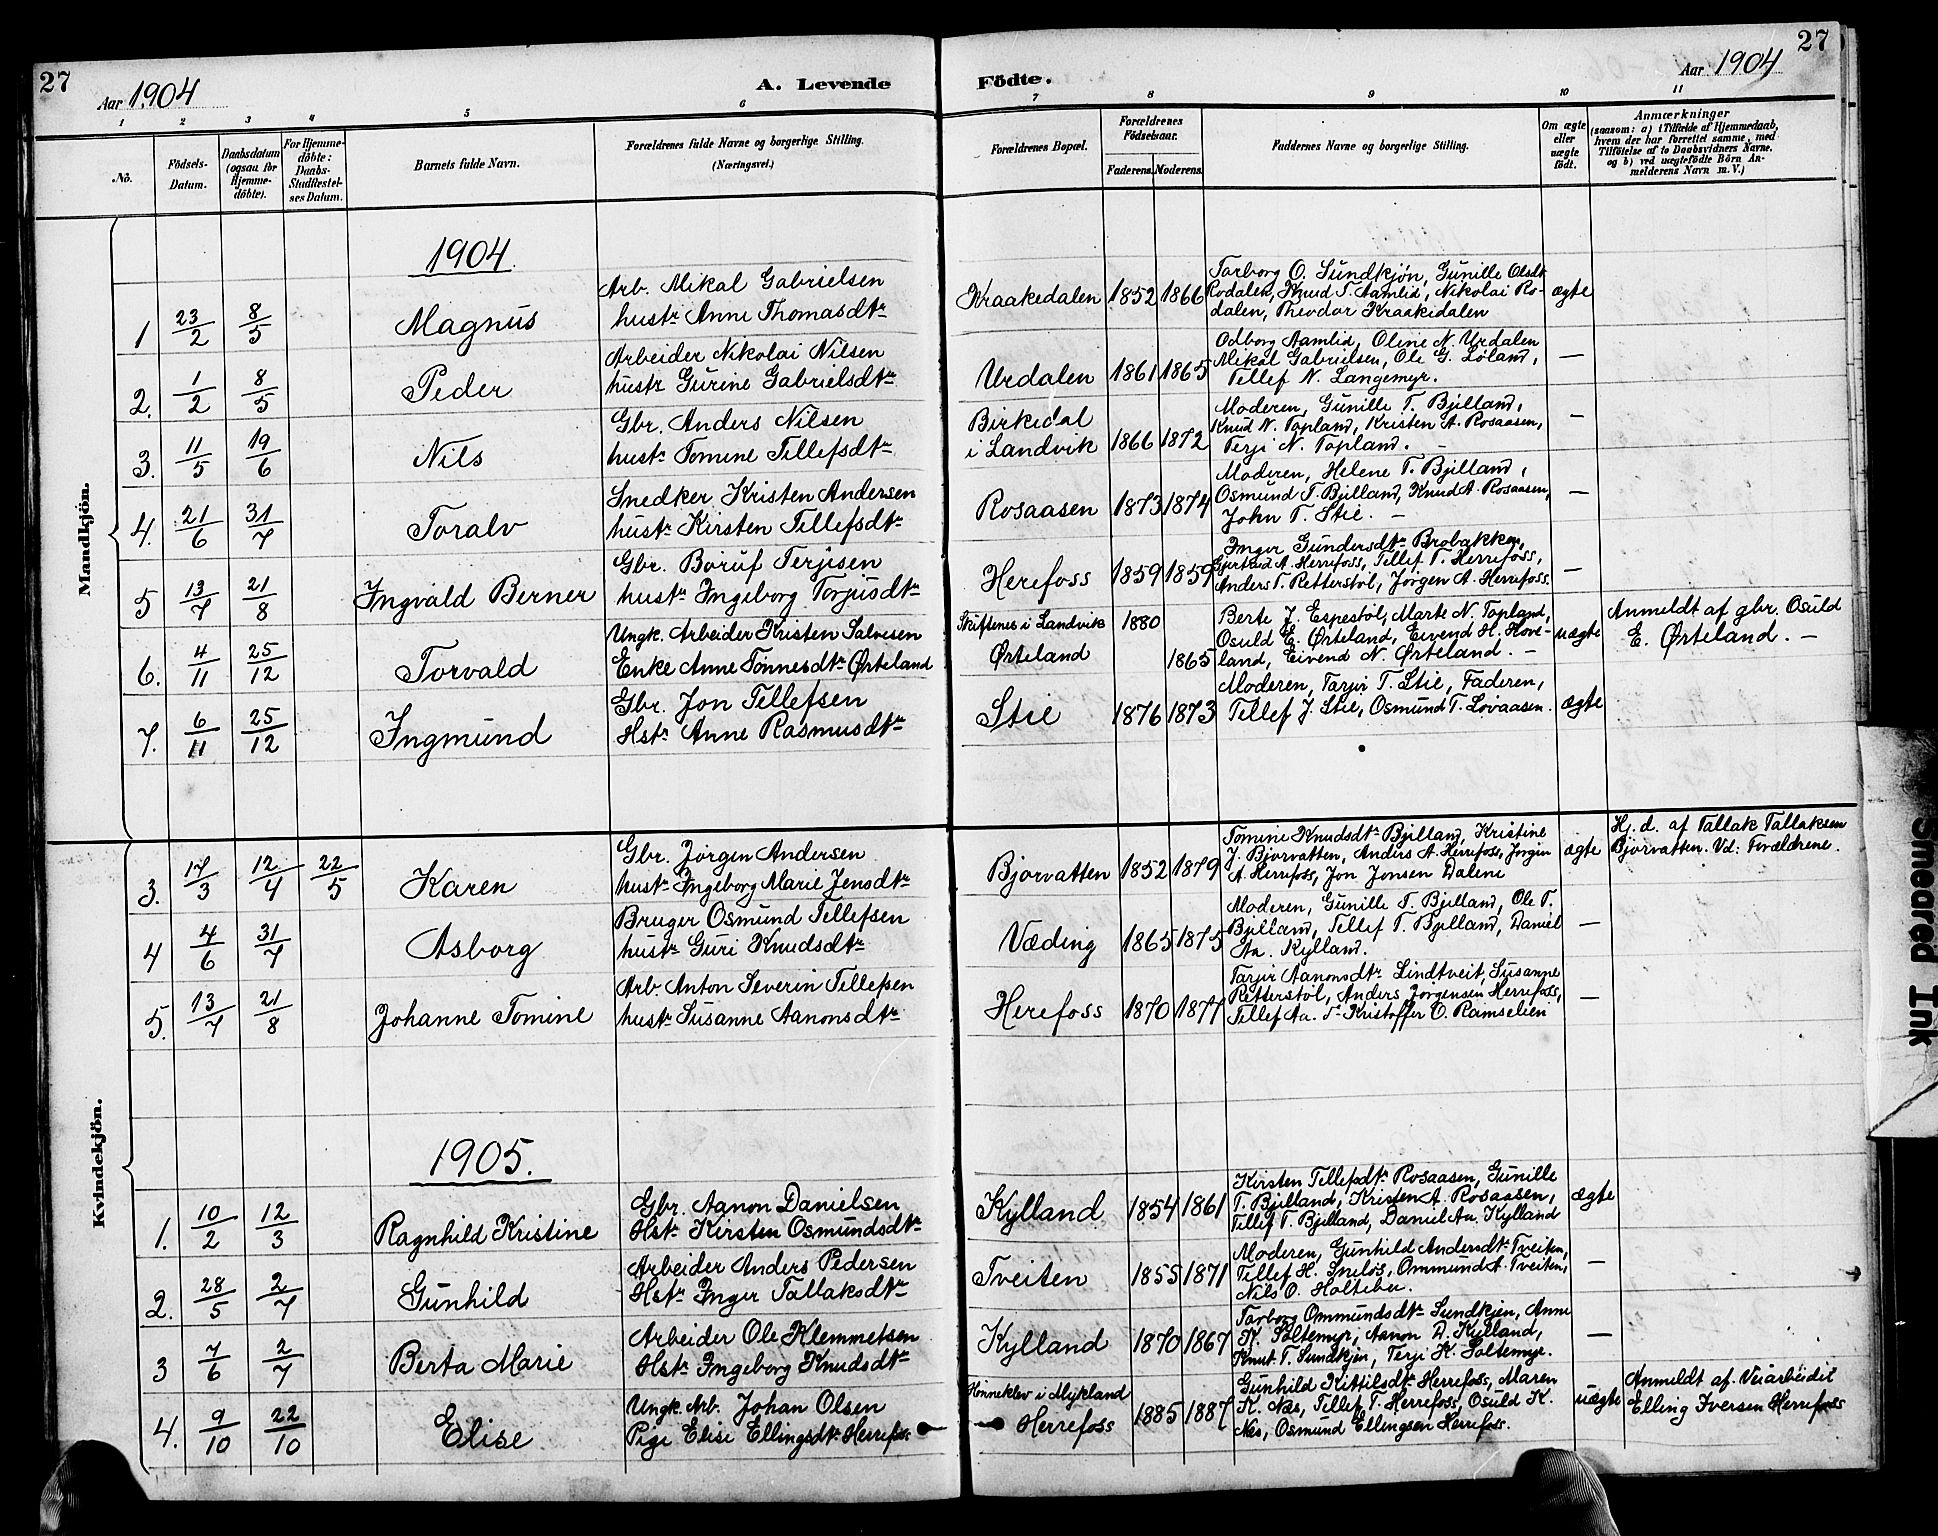 27
Aar 1904
A. Levende
Födte.
27
Aar 1904
1
2
3
4
5
6
7
8
9
10
11
No.
Födsels-
Datum.
Daabsdatum
(ogsaa for
Hjemme-
döbte).
For Hjemme-
döbte:
Daabs-
Stadfæstel-
ses Datum.
Barnets fulde Navn.
Forældrenes fulde Navne og borgerlige Stilling.
(Næringsvei.)
Forældrenes Bopæl.
Forældrenes
Födselsaar.
Faderens.
Moderens.
Faddernes Navne og borgerlige Stilling.
Om ægte
eller
uægte
födt.
Anmærkninger
(saasom: a) i Tilfælde af Hjemmedaab,
hvem der har forrettet samme, med
Tilföielse af to Daabsvidners Navne.
og b) ved uægtefödte Börn An-
melderens Navn m. V.)
Mandkjön.
1904
1 23/2 8/5 Magnus
Arb. Mikal Gabrielsen
hustr Anne Thomasdtr
Kraakedalen 1852 1866
Tarborg O. Sundkjøn, Gunille Olsdt
Rodalen, Knud T. Aamlid, Nikolai Ro-
dalen, Theodor Kraakedalen
ægte
2. 1/2 8/5 Peder
Arbeider Nikolai Nilsen
hustr Gurine Gabrielsdtr
Urdalen 1861 1865
Odborg Aamlid, Oline N. Urdalen
Mikal Gabrielsen, Ole G. Løland,
Tellef N. Langemyr.
—
3. 11/5 19/6 Nils
Gbr. Anders Nilsen
hustr Tomine Tellefsdtr
Birkedal
i Landvik 1866 1872
Moderen, Gunille T. Bjelland,
Knud N. Topland, Kristen A. Rosaasen,
Terje N. Topland. —
—
4. 21/6 31/7 Toralv
Snedker Kristen Andersen
hustr Kirsten Tellefsdtr
Rosaasen 1873 1874
Moderen, Helene T. Bjelland,
Osmund T. Bjelland, Knud A. Rosaasen,
John T. Stie. —
—
5 13/7 21/8 Ingvald Berner
Gbr. Boruf Terjesen
hustr Ingeborg Torjusdtr
Herefoss 1859 1859
Inger Gundersdtr Brobakken,
Gjertrud A. Herrefoss, Tellef T. Herrefoss,
Anders T. Retterstøl, Jørgen A. Herrefoss.
—
6. 4/11 25/12 Torvald
Ungk. Arbeider Kristen Salvesen
Enke Anne Tønnesdtr Ørteland
Skiftenes i Landvik 1880
Ørteland 1865
Berte J. Espestøl, Marte N. Topland,
Osuld E. Ørteland, Eivend H. Hove-
land, Eivend N. Ørteland. —
uægte
Anmeldt af gbr. Osuld
E. Ørteland. —
7. 6/11 25/12 Ingmund
Gbr. Jon Tellefsen
Hstr Anne Rasmusdtr
Stie 1876 1873
Moderen, Tarjer T. Stie, Faderen,
Tellef J. Stie, Osmund T. Løvaasen.
ægte
Kvindekjön.
3. 17/3 12/4 22/5 Karen
Gbr. Jørgen Andersen
hustr Ingeborg Marie Jensdtr
Bjorvatten 1852 1879
Tomine Knudsdtr Bjelland, Kristine
J. Bjorvatten, Anders A. Herrefoss, Jørgen
A. Herrefoss, Jon Jonsen Dalene
ægte
Hj. d. af Tallak Tallaksen
Bjorvatten. Vd: Forældrene.
4 4/6 31/7 Asborg
Bruger Osmund Tellefsen
hustr Guri Knudsdtr
Væding 1865 1875
Moderen, Gunille T. Bjelland, Ole T.
Bjelland, Tellef T. Bjelland, Daniel
Aa. Kylland.
—
5. 13/7 21/8 Johanne Tomine
Arb. Anton Severin Tellefsen
hustr Susanne Aanonsdtr
Herefoss 1870 1877
Tarjer Aanonsdtr Lindtveit, Susanne
Retterstøl, Anders Jørgensen Herrefoss,
Tellef Aa. T. Kristoffer O. Ramselien
—
1905.
1. 10/2 12/3 Ragnhild Kristine
Gbr. Aanon Danielsen
Hstr Kirsten Osmundsdtr
Kylland 1854 1861
Kirsten Tellefsdtr Rosaasen, Gunille
T. Bjelland, Kristen A. Rosaasen,
Tellef T. Bjelland, Daniel Aa. Kylland
ægte
2. 28/5 2/7 Gunhild
Arbeider Anders Pedersen
Hstr Inger Tallaksdtr
Tveiten 1855 1871
Moderen, Gunhild Andersdtr Tveiten,
Tellef H. Sneløs, Ommund A. Tveiten,
Nils O. Holteber
—
3 7/6 2/7 Berta Marie
Arbeider Ole Klemmetsen
Hstr Ingeborg Knudsdtr
Kylland 1870 1867
Tarborg Ommundsdtr Sundkjen, Anne
K. Soltemyr, Aanon D. Kylland,
Knut T. Sundkjen, Terje K. Soltemyr.
—
4. 9/10 22/10 Elise
Ungk. Arb. Johan Olsen
Pige Elise Ellingsdtr Herrefoss
Hønneklev i Mykland
Herrefoss 1885 1887
Gunhild Kittilsdtr Herrefoss, Maren
K. Næs, Tellef T. Herrefoss, Osuld K.
Næs, Osmund Ellingsen Herrefoss.
uægte
Anmeldt af Veiarbeider
Elling Iversen Herrefoss
Smeared Ink